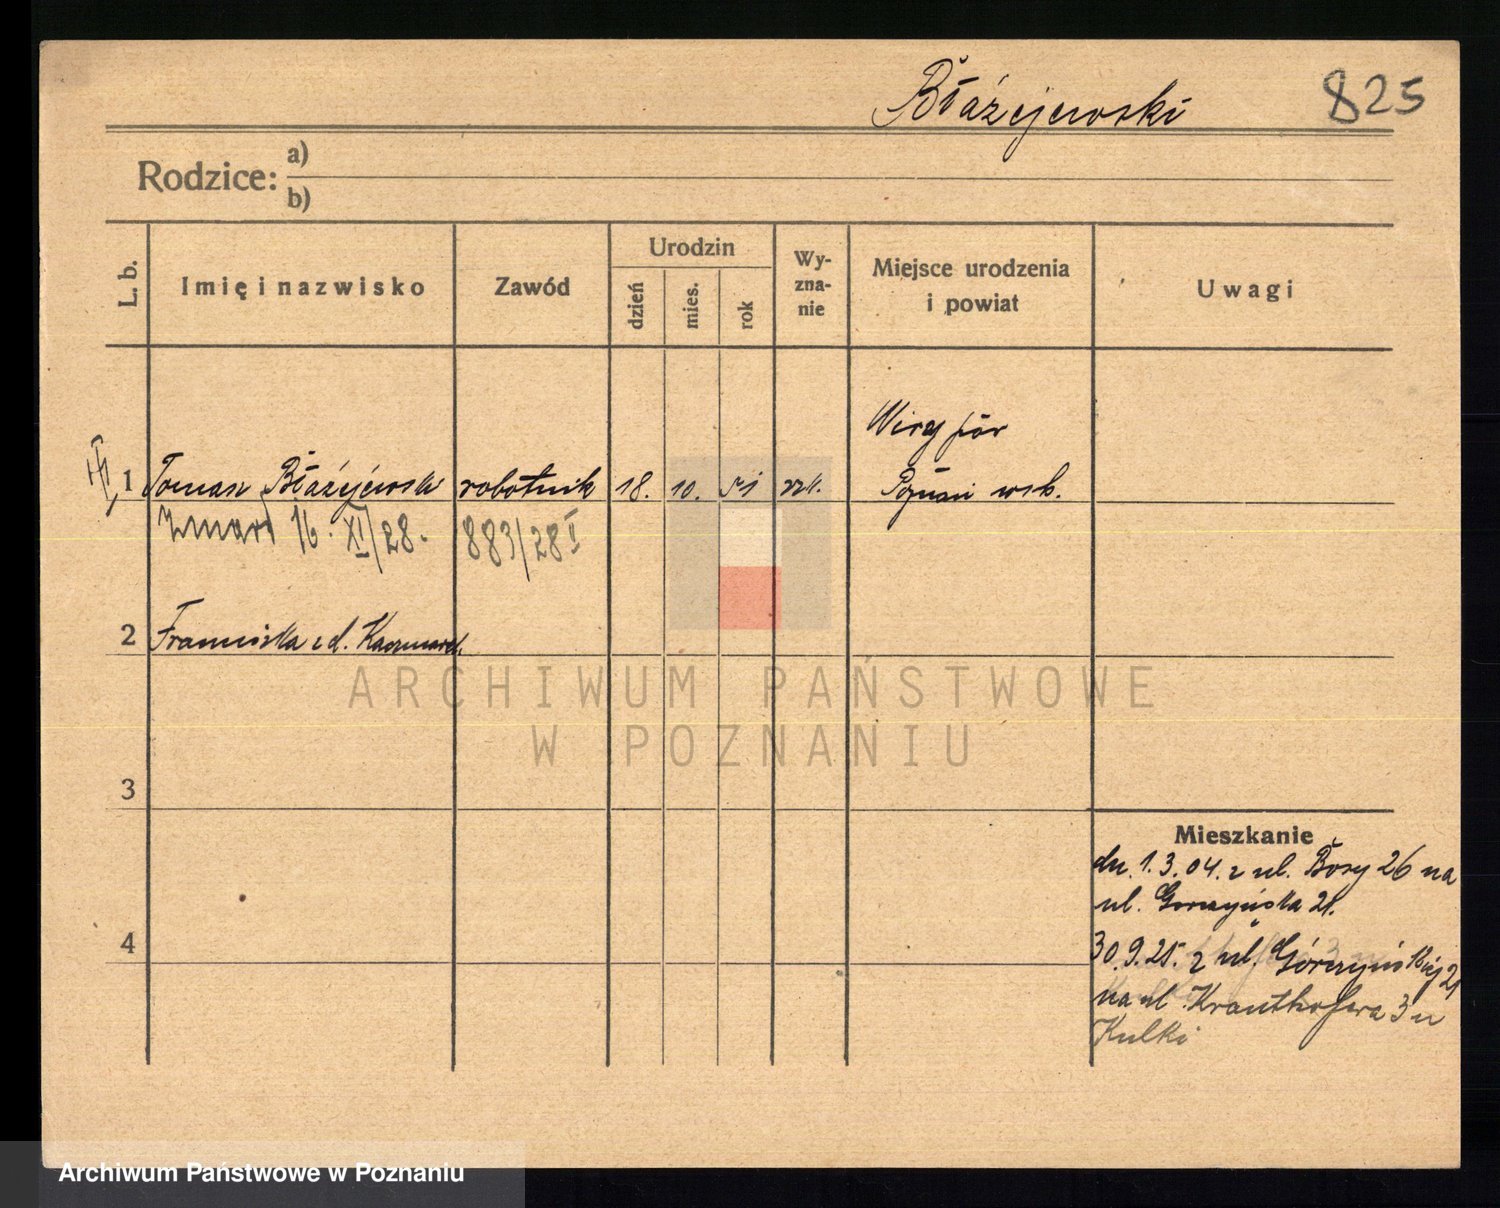 Błażejewski 825
Rodzice: a)
b)
L. b. Imię i nazwisko Zawód Urodzin dzień mies. rok Wy-zna-nie Miejsce urodzenia i powiat Uwagi
Wiry pow
1 Tomasz Błażejewski robotnik 18. 10. 51 rzk. Poznań wsch.
Zmarł 16. XI/28. 883/28 II
2 Franciszka z d. Kaczmarek
ARCHIWUM PAŃSTWOWE
W POZNANIU
3
Mieszkanie
dn. 1.3.04. z ul. Bosy 26 na
ul. Gorczyńska 21.
4
30.9.25. z ul. Górczyńskiej 21
na ul. Krauthofera 3 u
Kulki
Archiwum Państwowe w Poznaniu